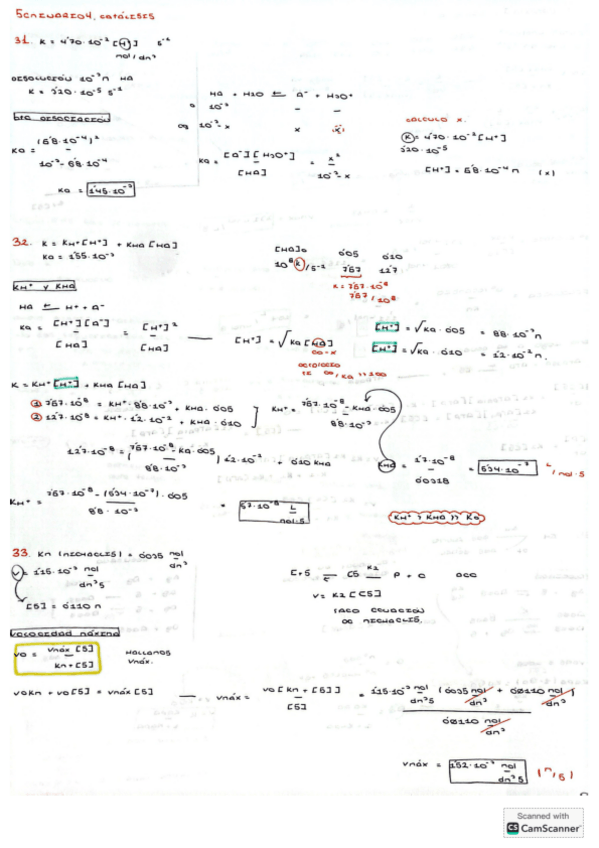 SEMINARIO 4, CATÁLISIS
31. K = 4'70·10⁻² [H⁺] s⁻¹
mol/dm³
DISOLUCIÓN 10⁻³ M HA
K = 3'20·10⁻⁵ s⁻¹
HA + H2O ⇄ A⁻ + H3O⁺
0 10⁻³ – –
eq 10⁻³-x x x
CTE DISOCIACIÓN
Ka = (6'8·10⁻⁴)² / 10⁻³ - 6'8·10⁻⁴
Ka = [A⁻][H3O⁺] / [HA] = x² / 10⁻³-x
CÁLCULO X.
K = 4'70·10⁻² [H⁺]
3'20·10⁻⁵
[H⁺] = 6'8·10⁻⁴ M (x)
Ka = 1'45·10⁻³
32. K = KH⁺[H⁺] + KHA [HA]
Ka = 1'55·10⁻³
[HA]0 0'05 0'10
10⁸ K/s⁻¹ 7'67 12'7
K = 7'67·10⁻⁸
7'67/10⁸
KH⁺ Y KHA
HA ⇄ H⁺ + A⁻
Ka = [H⁺][A⁻] / [HA] = [H⁺]² / [HA] — [H⁺] = √Ka [HA]
C0-x
[H⁺] = √Ka · 0'05 = 8'8·10⁻³ M
[H⁺] = √Ka · 0'10 = 1'2·10⁻² M.
K = KH⁺[H⁺] + KHA [HA]
① 7'67·10⁻⁸ = KH⁺ · 8'8·10⁻³ + KHA · 0'05
② 12'7·10⁻⁸ = KH⁺ · 1'2·10⁻² + KHA · 0'10
KH⁺ = 7'67·10⁻⁸ - KHA · 0'05 / 8'8·10⁻³
12'7·10⁻⁸ = (7'67·10⁻⁸ - Ka · 0'05 / 8'8·10⁻³) 1'2·10⁻² + 0'10 KHA
KHA = 1'7·10⁻⁸ / 0'0318 = 5'34·10⁻⁷ L/mol·s
KH⁺ = 7'67·10⁻⁸ - (5'34·10⁻⁷) · 0'05 / 8'8·10⁻³ = 5'7·10⁻⁶ L / mol·s
KH⁺ > KHA >> K0
33. KM (MICHAELIS) = 0'035 mol/dm³
V = 1'15·10⁻³ mol/dm³s
[S] = 0'110 M
E + S ⇄ ES K2 P + E
V = K2 [ES]
VELOCIDAD MÁXIMA
V0 = Vmáx [S] / KM + [S]
HALLAMOS
Vmáx.
V0 KM + V0 [S] = Vmáx [S] — Vmáx = V0 [KM + [S]] / [S] = 1'15·10⁻³ mol/dm³s (0'035 mol/dm³ + 0'110 mol/dm³) / 0'110 mol/dm³
Vmáx = 1'52·10⁻³ mol/dm³s (M/s)
Scanned with
CS CamScanner